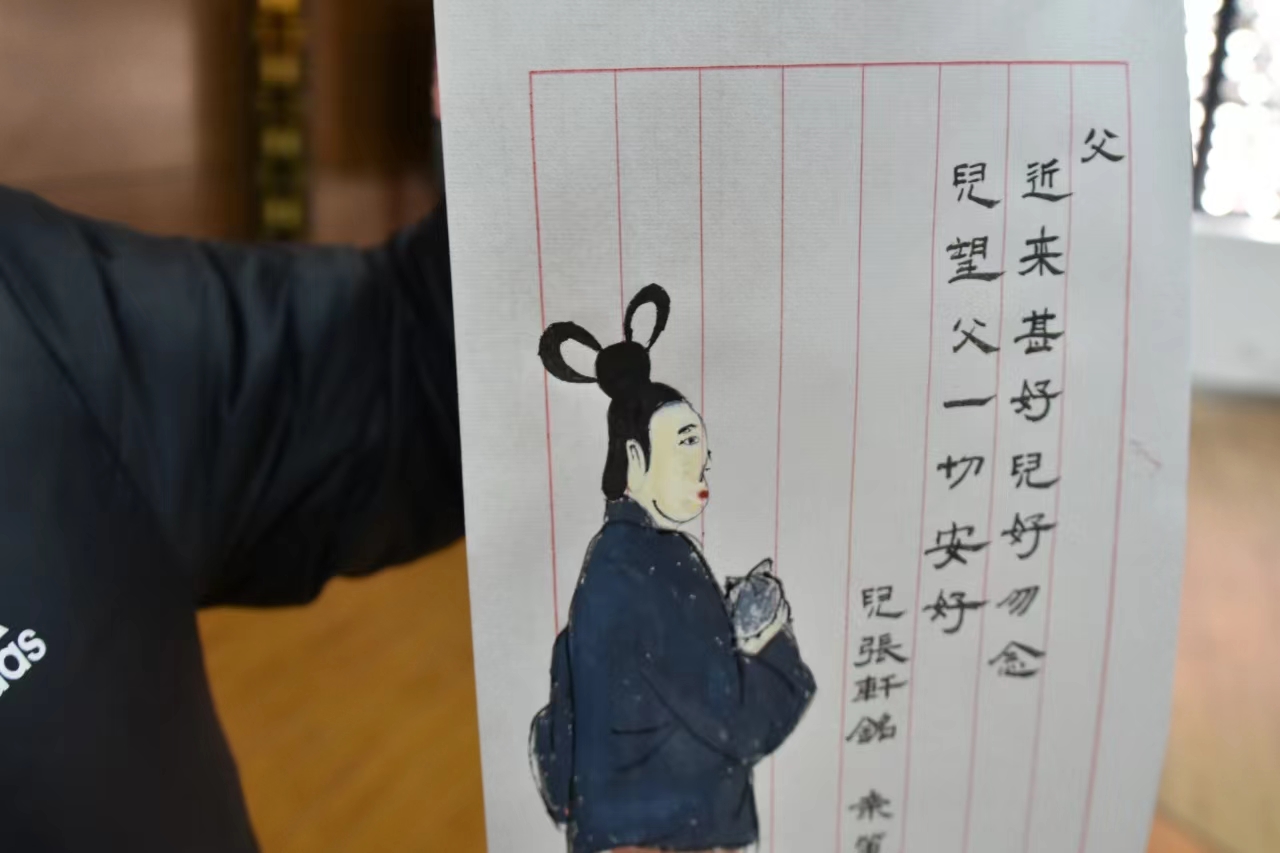 父
近来甚好兒好勿念
兒望父一切安好
兒張軒銘
das